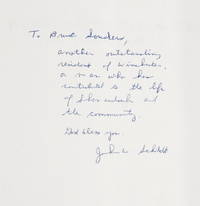 To Bruce Sanders,
another outstanding
resident of Winchester,
a man who has
contributed to the life
of Shenandoah and
the community.
God bless you.
John